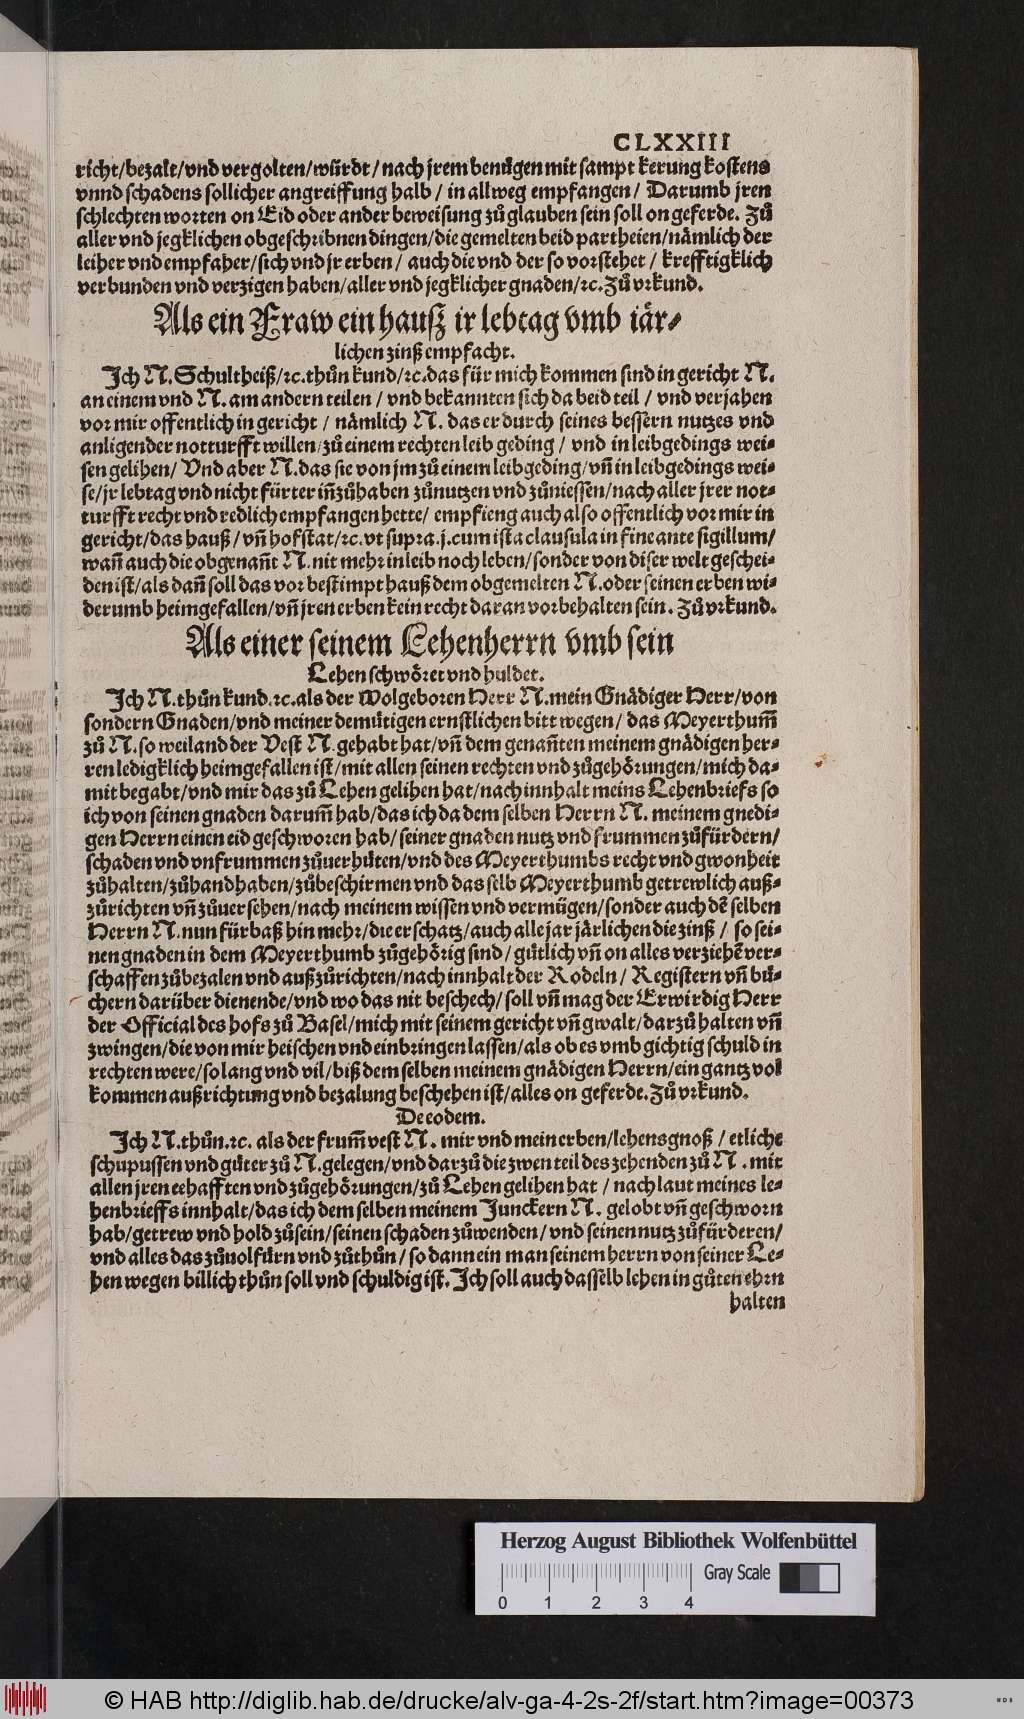 CLXXIII
richt/bezalt/vnd vergolten/würdt/nach jrem benügen mit sampt kerung kostens
vnnd schadens sollicher angreiffung halb / in allweg empfangen / Darumb jren
schlechten worten on Eid oder ander beweisung zů glauben sein soll on geferde. Zů
aller vnd jegklichen obgeschribnen dingen/die gemelten beid partheien/nämlich der
leiher vnd empfaher/sich vnd jr erben / auch die vnd der so vorstehet / krefftigklich
verbunden vnd verzigen haben/aller vnd jegklicher gnaden/ꝛc. Zů vrkund.
Als ein Fraw ein hausz ir lebtag vmb iär-
lichen zinß empfacht.
Ich N. Schultheiß/ꝛc. thůn kund/ꝛc. das für mich kommen sind in gericht N.
an einem vnd N. am andern teilen / vnd bekannten sich da beid teil / vnd verjahen
vor mir offentlich in gericht / nämlich N. das er durch seines bessern nutzes vnd
anligender notturfft willen/zů einem rechten leib geding / vnd in leibgedings wei-
sen gelihen/ Vnd aber N. das sie von jm zů einem leibgeding/vñ in leibgedings wei-
se/jr lebtag vnd nicht fürter iñzůhaben zůnutzen vnd zůniessen/nach aller jrer not-
turfft recht vnd redlich empfangen hette/ empfieng auch also offentlich vor mir in
gericht/das hauß/vñ hofstat/ꝛc. vt supra. j. cum ista clausula in fine ante sigillum/
wañ auch die obgenañt N. nit mehr in leib noch leben/sonder von diser welt geschei-
den ist/als dañ soll das vor bestimpt hauß dem obgemelten N. oder seinen erben wi-
derumb heimgefallen/vñ jren erben kein recht daran vorbehalten sein. Zů vrkund.
Als einer seinem Lehenherrn vmb sein
Lehen schwöret vnd huldet.
Ich N. thůn kund. ꝛc. als der Wolgeboren Herr N. mein Gnädiger Herr/von
sondern Gnaden/vnd meiner demütigen ernstlichen bitt wegen/ das Meyerthum̃
zů N. so weiland der Vest N. gehabt hat/vñ dem genañten meinem gnädigen her-
ren ledigklich heimgefallen ist/mit allen seinen rechten vnd zůgehörungen/mich da-
mit begabt/vnd mir das zů Lehen gelihen hat/nach innhalt meins Lehenbriefs so
ich von seinen gnaden darum̃ hab/das ich da dem selben Herrn N. meinem gnedi-
gen Herrn einen eid geschworen hab/seiner gnaden nutz vnd frummen zůfürdern/
schaden vnd vnfrummen zůuerhüten/vnd des Meyerthumbs recht vnd gwonheit
zůhalten/zůhandhaben/zůbeschirmen vnd das selb Meyerthumb getrewlich auß-
zůrichten vñ zůuersehen/nach meinem wissen vnd vermügen/sonder auch dẽ selben
Herrn N. nun fürbaß hin mehr/die erschatz/auch alle jar järlichen die zinß / so sei-
nen gnaden in dem Meyerthumb zůgehörig sind/ gütlich vñ on alles verziehẽ ver-
schaffen zůbezalen vnd außzůrichten/nach innhalt der Rodeln / Registern vñ bü-
chern darüber dienende/vnd wo das nit beschech/ soll vñ mag der Erwirdig Herr
der Official des hofs zů Basel/mich mit seinem gericht vñ gwalt/darzů halten vñ
zwingen/die von mir heischen vnd einbringen lassen/als ob es vmb gichtig schuld in
rechten were/solang vnd vil/biß dem selben meinem gnädigen Herrn/ein gantz vol
kommen außrichtung vnd bezalung beschehen ist/alles on geferde. Zů vrkund.
De eodem.
Ich N. thůn. ꝛc. als der frum̃ vest N. mir vnd mein erben/lehensgnoß / etliche
schupussen vnd güter zů N. gelegen/vnd darzů die zwen teil des zehenden zů N. mit
allen jren eehafften vnd zůgehörungen/zů Lehen gelihen hat / nach laut meines le-
henbrieffs innhalt/das ich dem selben meinem Junckern N. gelobt vñ geschworn
hab/getrew vnd hold zůsein/seinen schaden zůwenden/ vnd seinen nutz zůfürderen/
vnd alles das zůuolfürn vnd zůthůn / so dann ein man seinem herrn von seiner Le-
hen wegen billich thůn soll vnd schuldig ist. Ich soll auch dasselb lehen in gůten ehrn
halten
Herzog August Bibliothek Wolfenbüttel
Gray Scale
0 1 2 3 4
© HAB http://diglib.hab.de/drucke/alv-ga-4-2s-2f/start.htm?image=00373